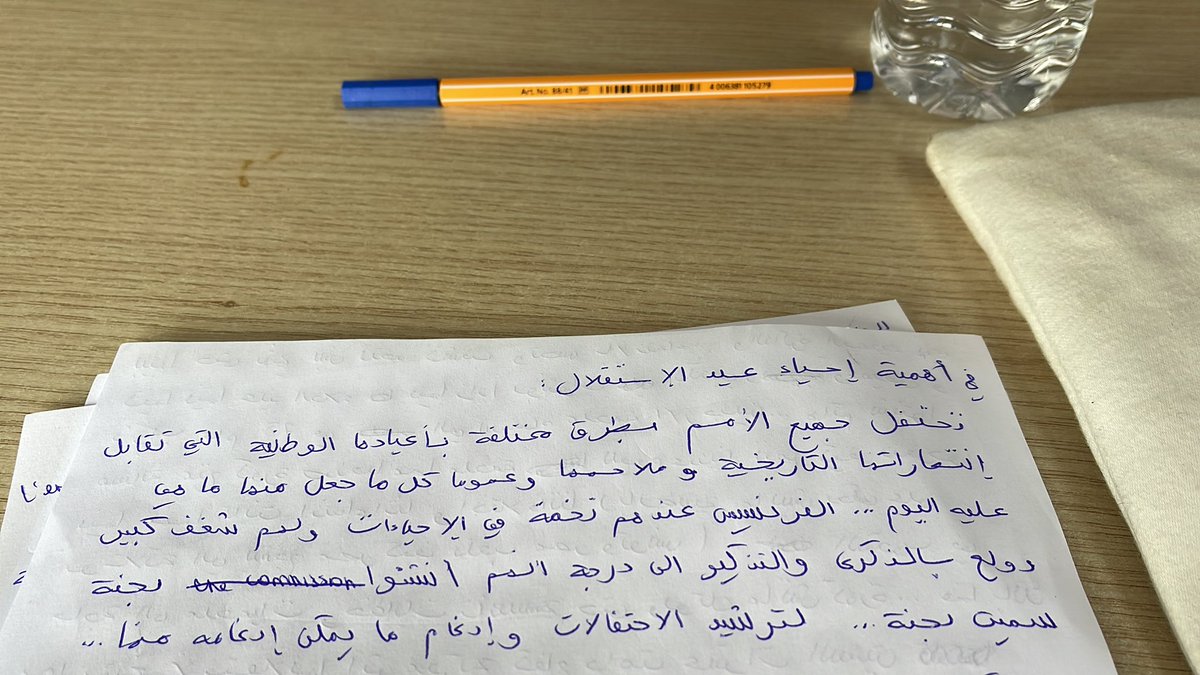 Art. No. 88/41
4 006381 105279
في أهمية إحياء عيد الإستقلال :
تحتفل جميع الأمم بطرق مختلفة بأعيادها الوطنية التي تقابل
إنتصاراتها التاريخية وملاحمها وعموما كل ما جعل منها ما هي
عليه اليوم ... الفرنسيس عندهم تخمة في الإحياءات ولهم شغف كبير
وولع بالذكرى والتذكير الى درجة انهم أنشئوا the commission لجنة
سميت لجنة ... لترشيد الاحتفالات وإدغام ما يمكن إدغامه منها ...